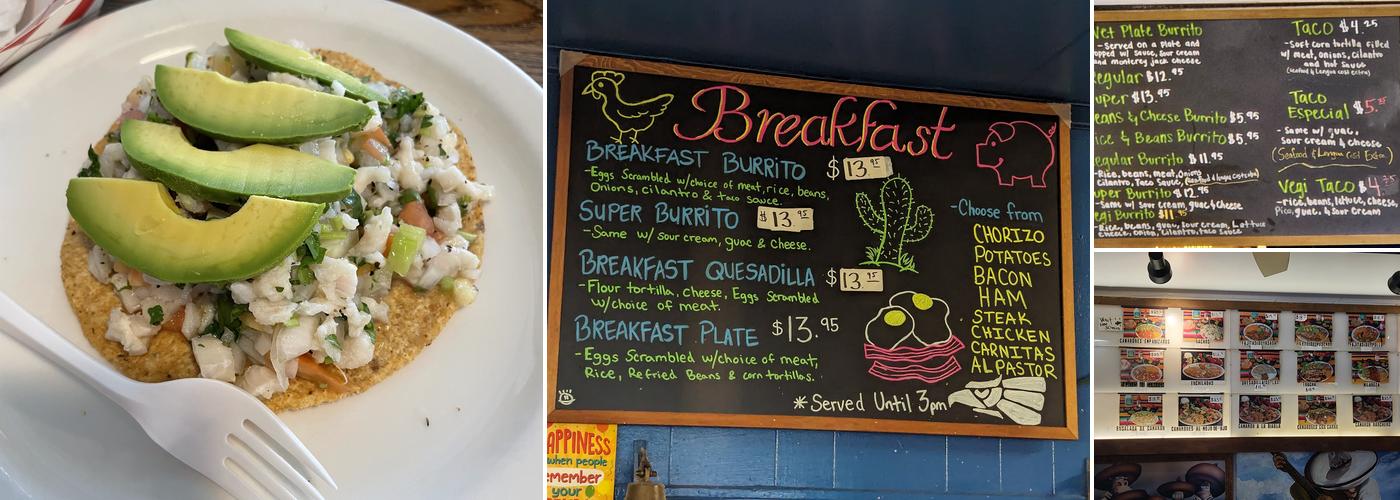 Breakfast
BREAKFAST BURRITO $13.95
-Eggs Scrambled w/choice of meat, rice, beans,
Onions, cilantro & taco sauce.
SUPER BURRITO $13.95
-Same w/ sour cream, guac & Cheese.
BREAKFAST QUESADILLA $13.95
-Flour tortilla, cheese, Eggs Scrambled
w/choice of meat.
BREAKFAST PLATE $13.95
-Eggs Scrambled w/choice of meat,
Rice, Refried Beans & corn tortillas.
-Choose from
CHORIZO
POTATOES
BACON
HAM
STEAK
CHICKEN
CARNITAS
AL PASTOR
*Served Until 3pm
APPINESS
when people
emember
your
Wet Plate Burrito
-Served on a plate and
opped w/ sauce, sour cream
and monterey jack cheese
egular $12.95
uper $13.95
eans & Cheese Burrito $5.95
ice & Beans Burrito $5.95
egular Burrito $11.95
-Rice, beans, meat, Onions
Cilantro, Taco Sauce,
uper Burrito $12.95
-Same w/ sour cream, guac & Cheese
egi Burrito $11.95
-Rice, beans, guac, sour cream, Lettuce
cheese, onion, cilantro, taco sauce
Taco $4.25
-Soft corn tortilla filled
w/ meat, onions, cilantro
and hot sauce
(Seafood & Lengua cost Extra)
Taco
Especial $5.
-Same w/ guac,
sour cream & cheese
(Seafood & Lengua cost Extra)
Vegi Taco $4.
-rice, beans, lettuce, cheese,
Pico, guac, & Sour Cream
NACHOS
ENCHILADAS